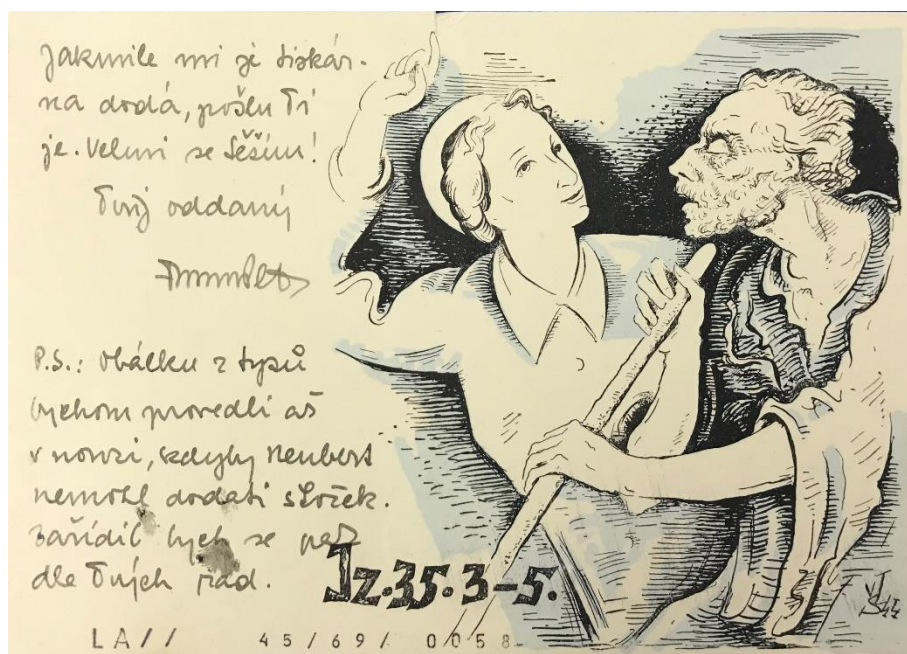 Jakmile mi je tiskár-
na dodá, pošlu Ti
je. Velmi se těším!
Tvůj oddaný
P.S.: Obálku z typů
bychom provedli až
v nouzi, kdyby Neubert
nemohl dodati složek.
Zařídil bych se pak
dle Tvých rad.
Iz.35.3-5.
LA// 45/69/ 0058